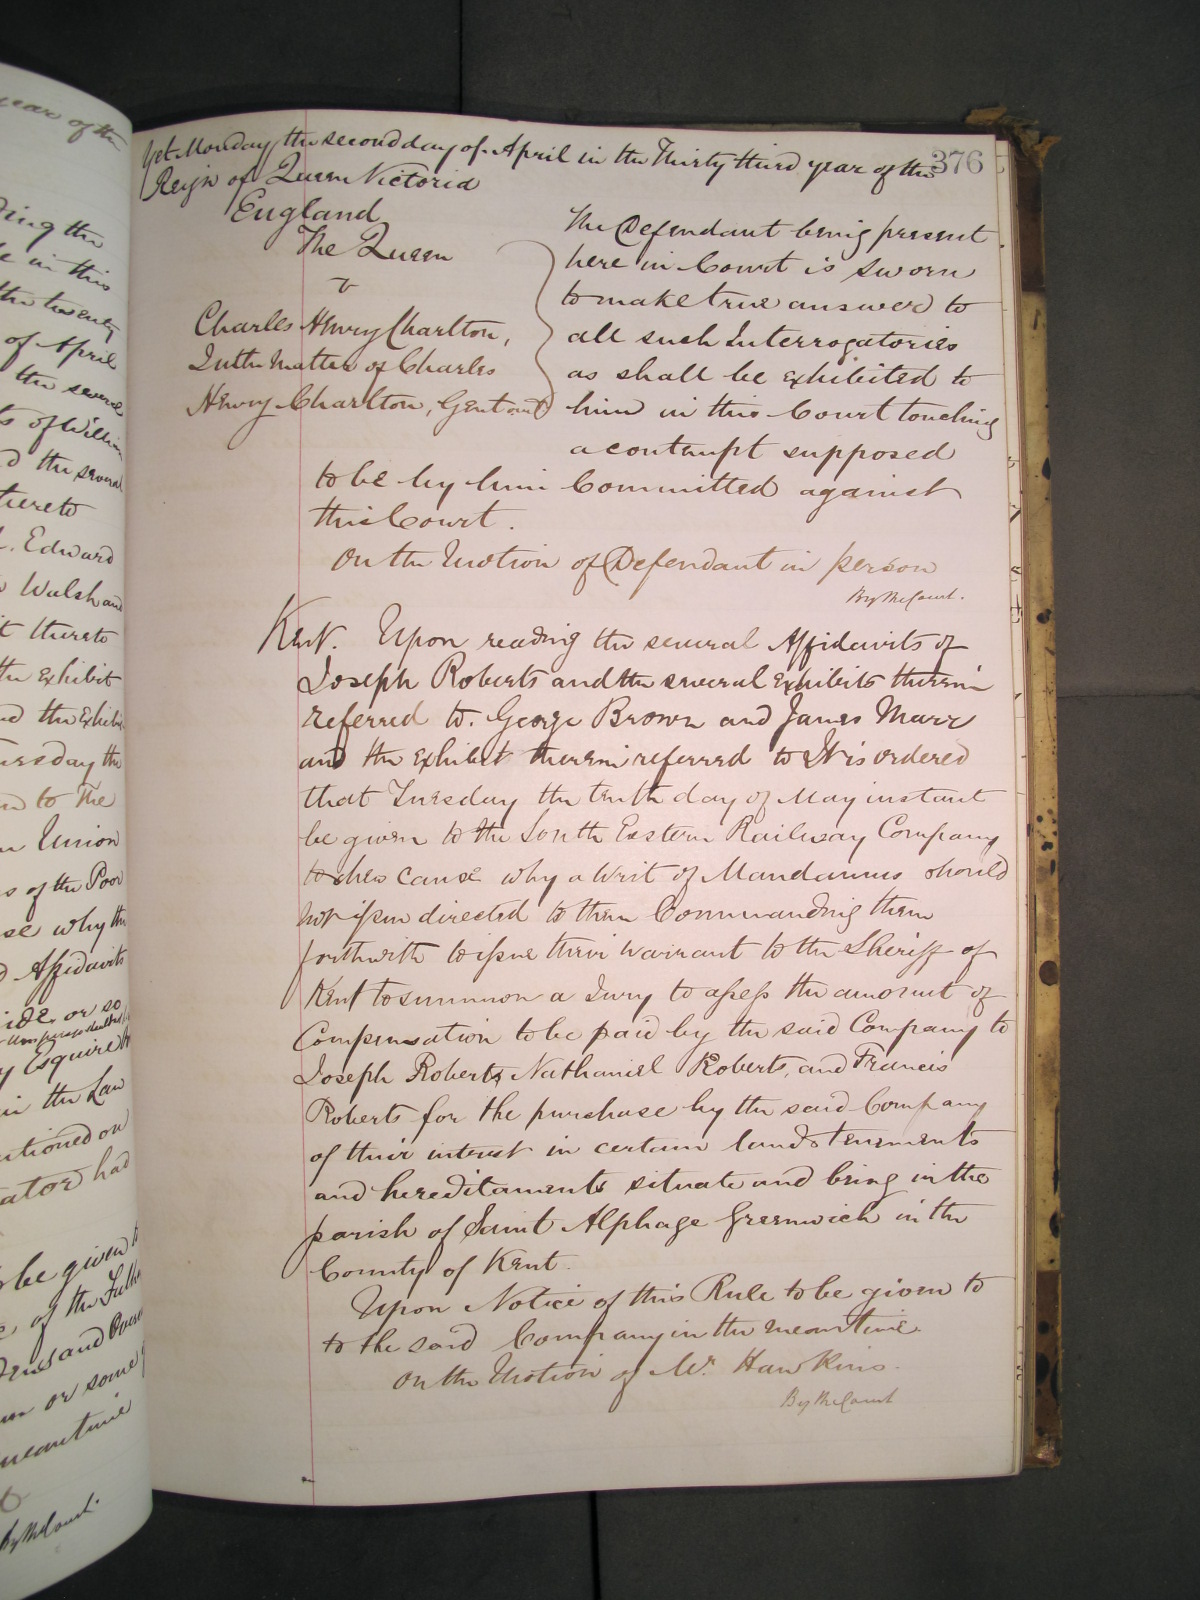 year of the
ding the
e in this
the twenty
of April
the several
ts of William
d the several
thereto
Edward
Walsh and
t thereto
the Exhibit
nd the Exhibi
ursday the
to The
Union
s of the Poor
se why the
d Affidavits
ide or so
y Esquire
in the Law
ntioned on
ator had
be given t
of the
and
or some
meantime
By the Court.
376
Yet Monday the second day of April in the Thirty third year of the
Reign of Queen Victoria
England
The Queen
v
Charles Henry Charlton,
In the Matter of Charles
Henry Charlton, Gent one
The Defendant being present
here in Court is sworn
to make true answer to
all such Interrogatories
as shall be exhibited to
him in this Court touching
a contempt supposed
to be by him Committed against
this Court.
On the Motion of Defendant in person
By the Court.
Kent. Upon reading the several Affidavits of
Joseph Roberts and the several Exhibits therein
referred to. George Brown and James Marr
and the Exhibit therein referred to It is ordered
that Tuesday the tenth day of May instant
be given to the South Eastern Railway Company
to shew cause why a Writ of Mandamus should
not issue directed to them Commanding them
forthwith to issue their warrant to the Sheriff of
Kent to summon a Jury to assess the amount of
Compensation to be paid by the said Company to
Joseph Roberts, Nathaniel Roberts, and Francis
Roberts for the purchase by the said Company
of their interest in certain lands tenements
and hereditaments situate and being in the
parish of Saint Alphage Greenwich in the
County of Kent.
Upon Notice of this Rule to be given to
to the said Company in the meantime.
On the Motion of Mr. Hawkins.
By the Court